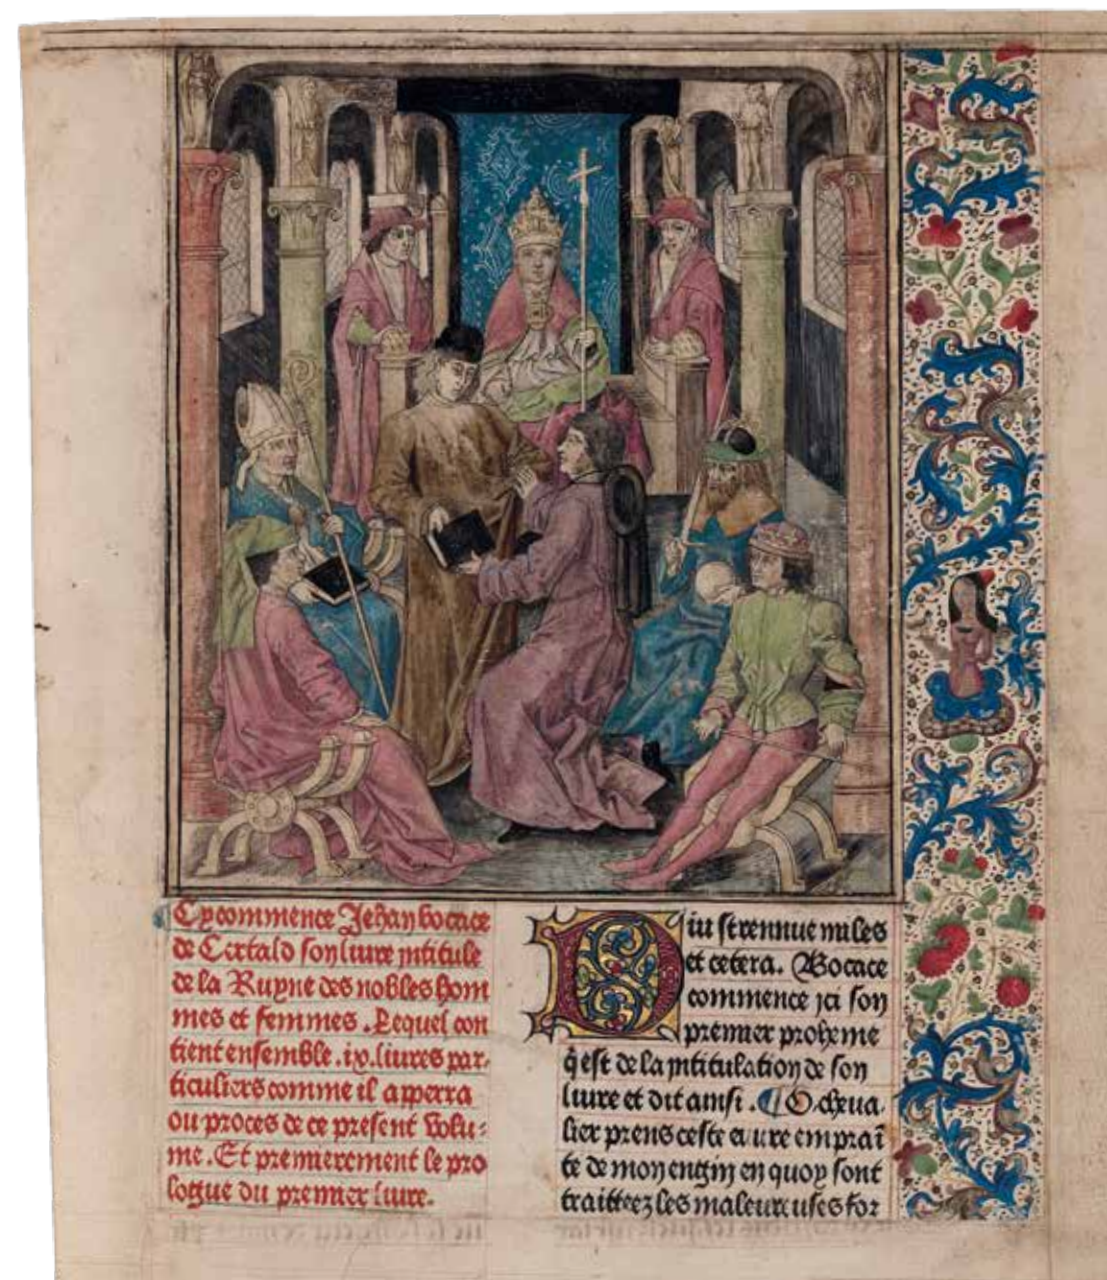 Cy commence Jehan bocace
de Certald son liure intitule
de la Ruyne des nobles hom
mes et femmes . Lequel con
tient ensemble . ix . liures par-
ticuliers comme il apperra
ou proces de ce present volu-
me . Et premierement le pro
logue du premier liure .
Diu strennue miles
et cetera . Bocace
commence ici son
premier proheme
q̃ est de la intitulation de son
liure et dit ainsi . ¶ O cheua
lier prens ceste euure emprain
te de mon engin en quoy sont
traitteez les maleureuses for